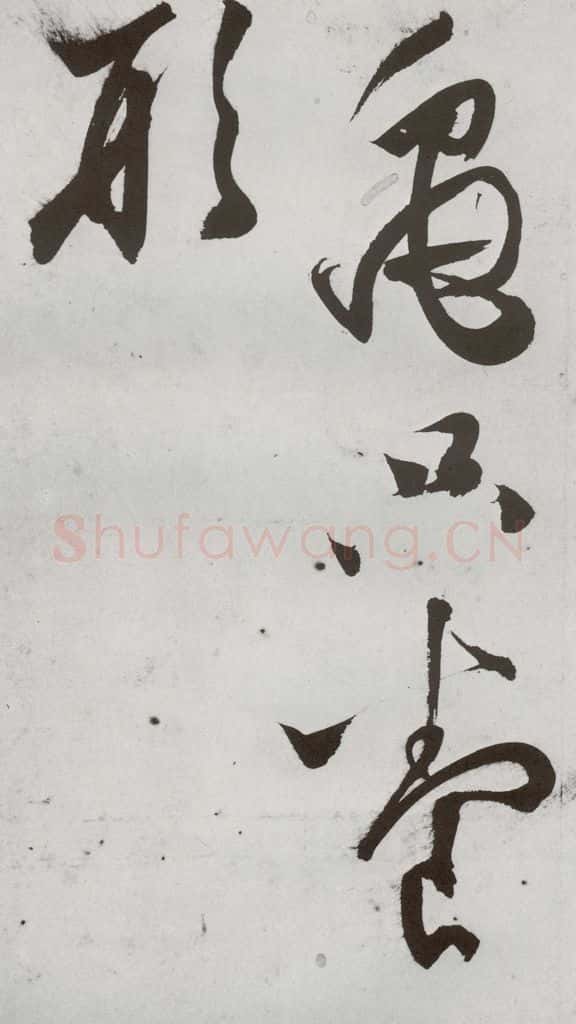 龜只
形
Shufawang.CN